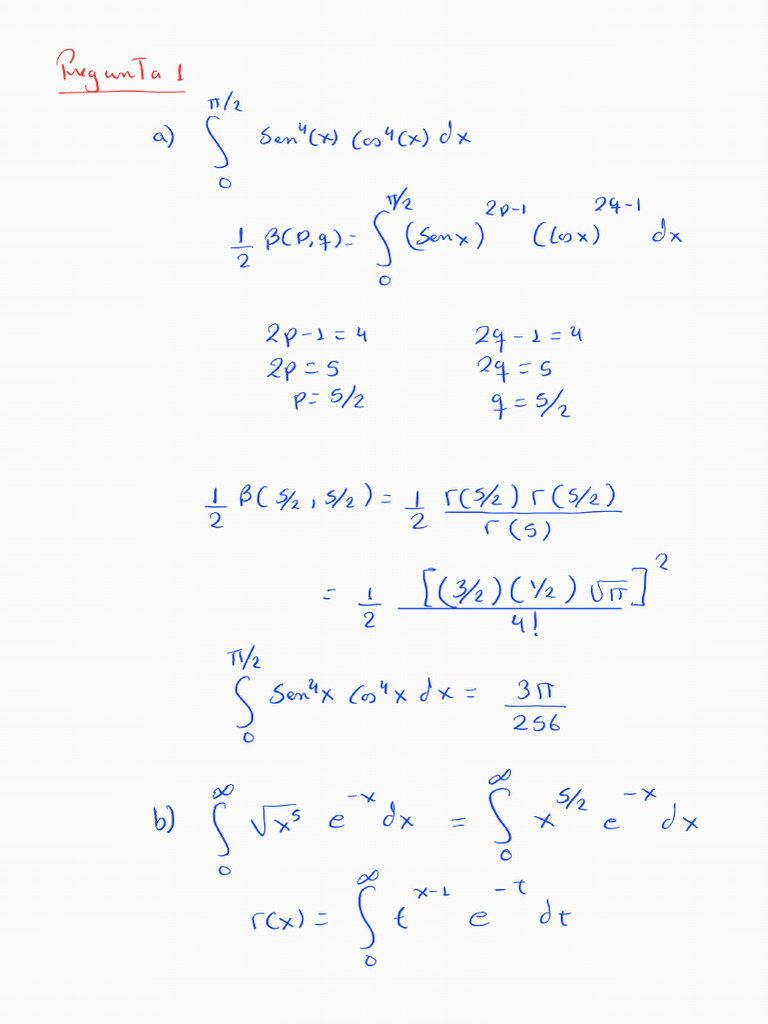 Pregunta 1
a) ∫₀^{π/2} Sen⁴(x) Cos⁴(x) dx
1/2 β(P,q) = ∫₀^{π/2} (Senx)^{2P-1} (Cosx)^{2q-1} dx
2p-1=4 2q-1=4
2p=5 2q=5
p=5/2 q=5/2
1/2 β(5/2, 5/2) = 1/2 Γ(5/2) Γ(5/2) / Γ(5)
= 1/2 [(3/2)(1/2)√π]² / 4!
∫₀^{π/2} Sen⁴x Cos⁴x dx = 3π/256
b) ∫₀^∞ √x⁵ e^{-x} dx = ∫₀^∞ x^{5/2} e^{-x} dx
Γ(x) = ∫₀^∞ t^{x-1} e^{-t} dt